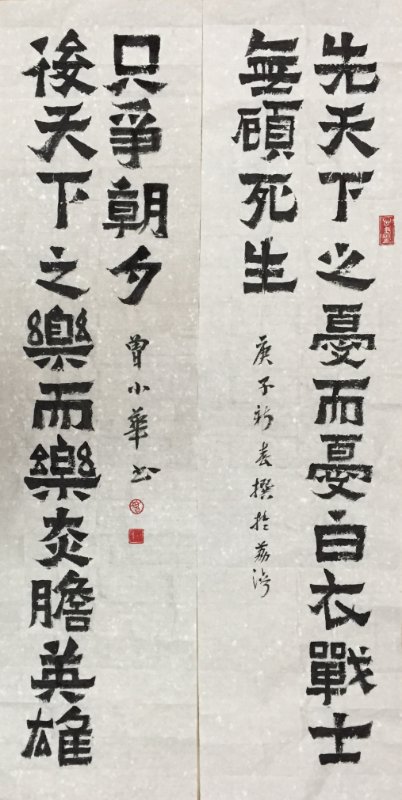 先天下之憂而憂白衣戰士
無顧死生
庚子新春撰於荔灣
後天下之樂而樂赤膽英雄
只爭朝夕
曾小華书